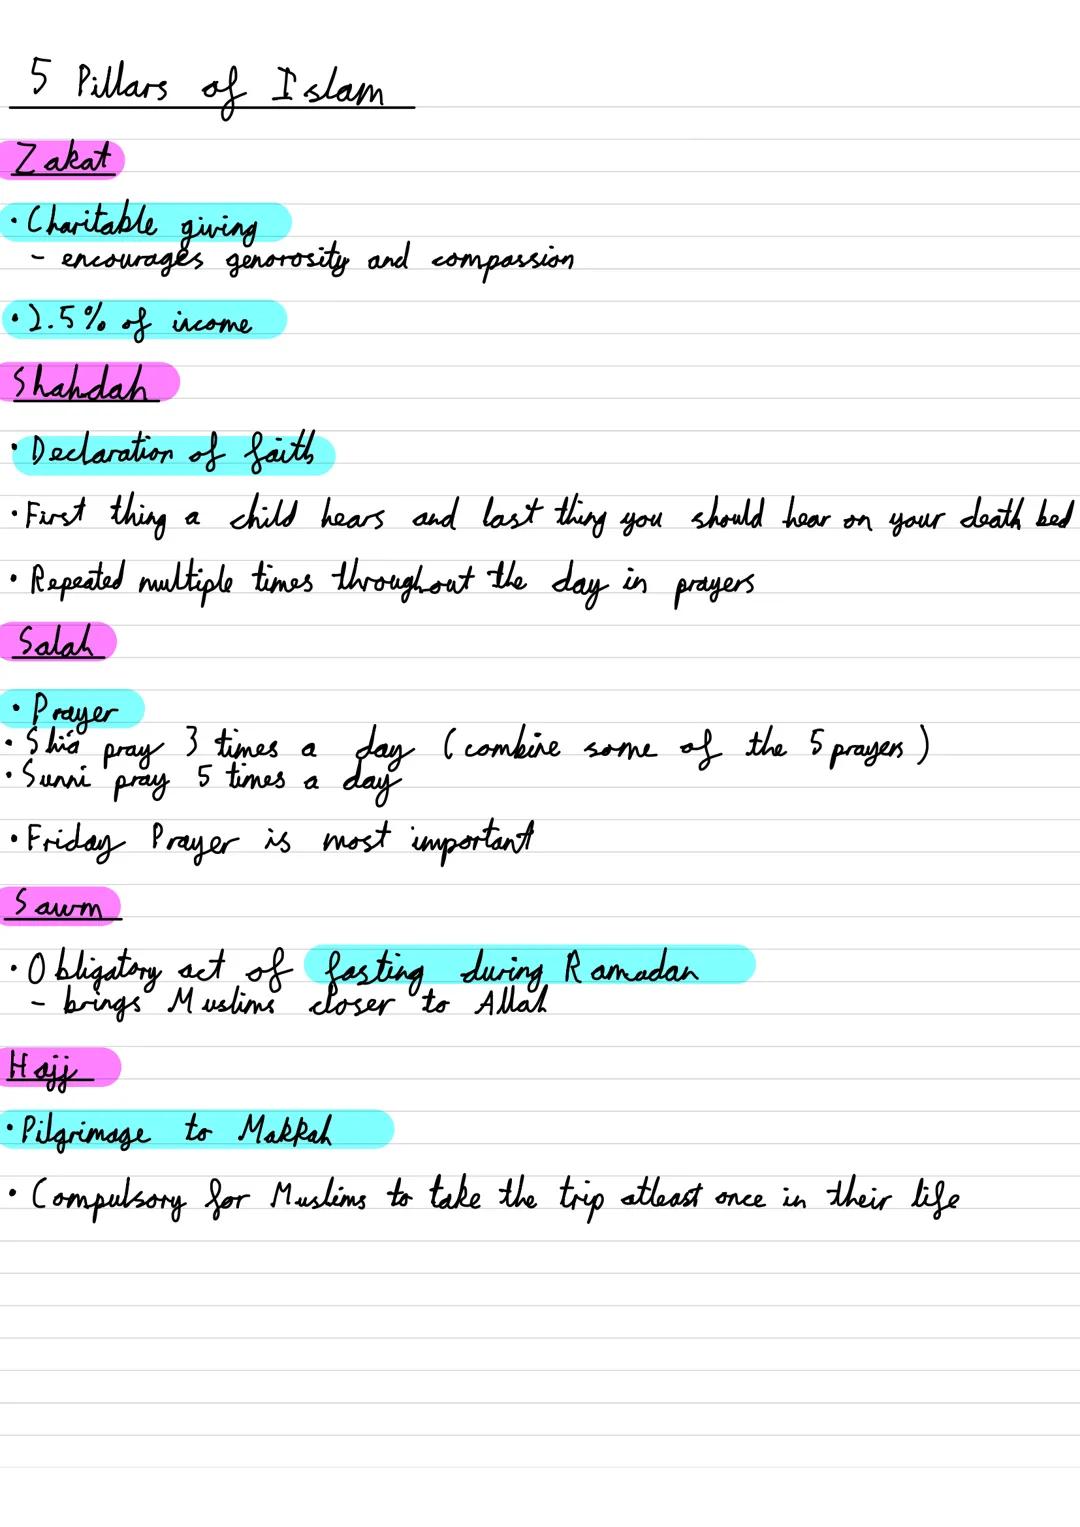 5 Pillars of Islam
Zakat
• Charitable giving
- encourages genorosity and compassion
• 2.5% of income
Shahdah
• Declaration of faith
• First thing a child hears and last thing you should hear on your death bed
• Repeated multiple times throughout the day in prayers
Salah
• Prayer
• Shia pray 3 times a day (combine some of the 5 prayers)
• Sunni pray 5 times a day
• Friday Prayer is most important
Sawm
• Obligatory act of fasting during Ramadan
- brings Muslims closer to Allah
Hajj
• Pilgrimage to Makkah
• Compulsory for Muslims to take the trip atleast once in their life